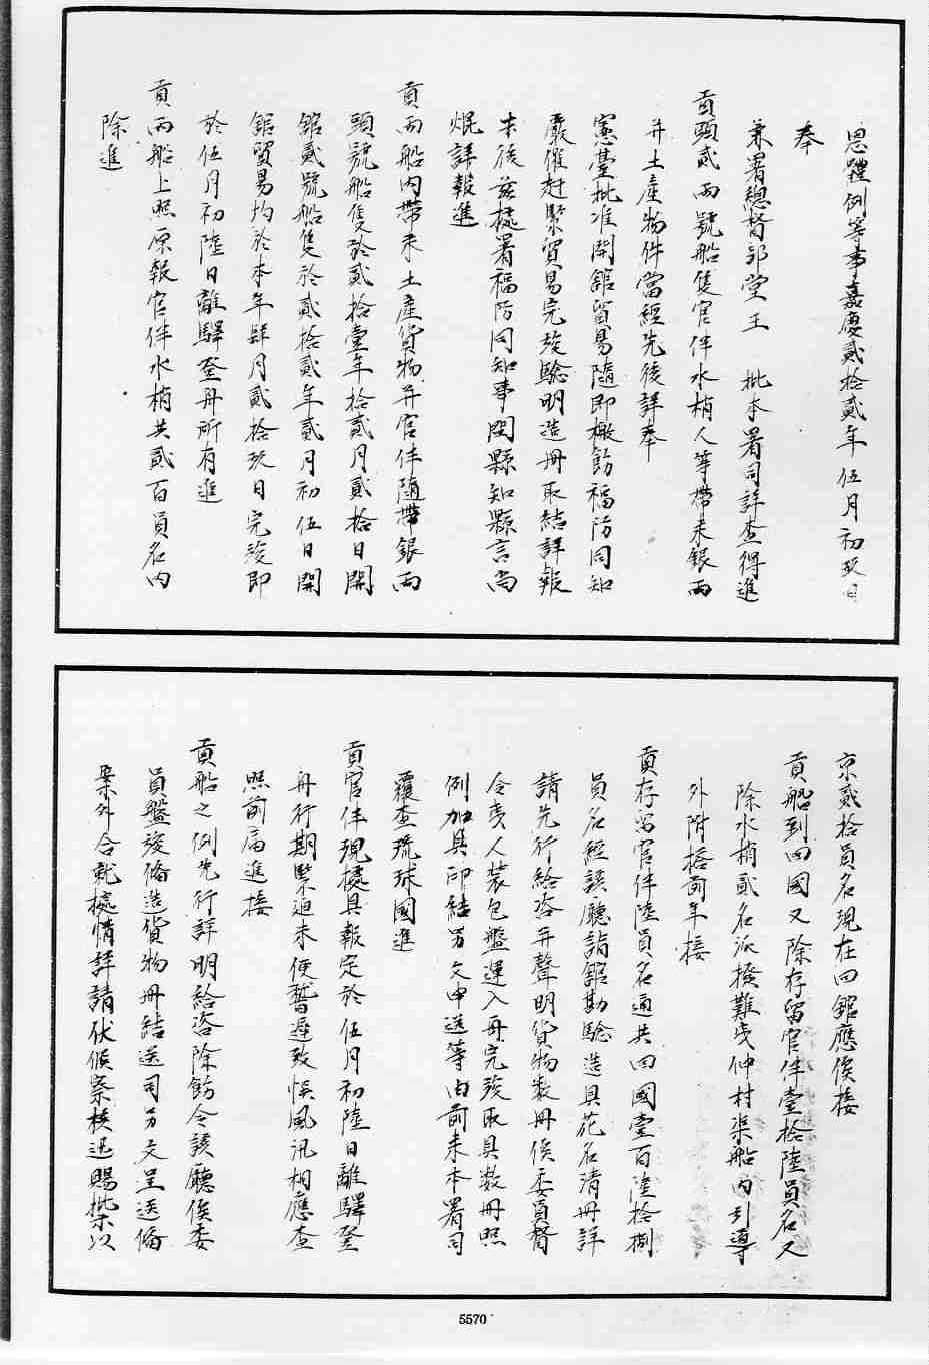 恩懽例等事嘉慶貳拾貳年伍月初玖日
奉
兼署總督部堂王　批本署司詳查得進
貢頭貳兩號船隻官伴水梢人等帶來銀兩
并土產物件當經先後詳奉
憲臺批准開館貿易隨即檄飭福防同知
嚴催赶緊貿易完竣驗明造册取結詳報
去後茲據署福防同知事閩縣知縣言尚
焜詳報進
貢兩船內帶來土產貨物并官伴隨帶銀兩
頭號船隻於貳拾壹年拾貳月貳拾日開
館貳號船隻於貳拾貳年貳月初伍日開
館貿易均於本年肆月貳拾玖日完竣即
於伍月初陸日離驛登舟所有進
貢兩船上照原報官伴水梢共貳百員名內
除進
京貳拾員名現在回館應俟接
貢船到回國又除存留官伴壹拾陸員名又
除水梢貳名派撥難夷仲村渠船內引導
外附搭前年接
貢存留官伴陸員名通共回國壹百陸拾捌
員名經該廳詣館勘驗造具花名清册詳
請先行給咨并聲明貨物數册俟委員督
令夷人裝包盤運入舟完竣取具數册照
例加具印結另文申送等由前來本署司
覆查琉球國進
貢官伴現據具報定於伍月初陸日離驛登
舟行期緊迫未便暫遲致悞風汛相應查
照前屆進接
貢船之例先行詳明給咨除飭令該廳俟委
員盤竣俻造貨物册結送司另文呈送俻
案外合就據情詳請伏候察核迅賜批示以
5570